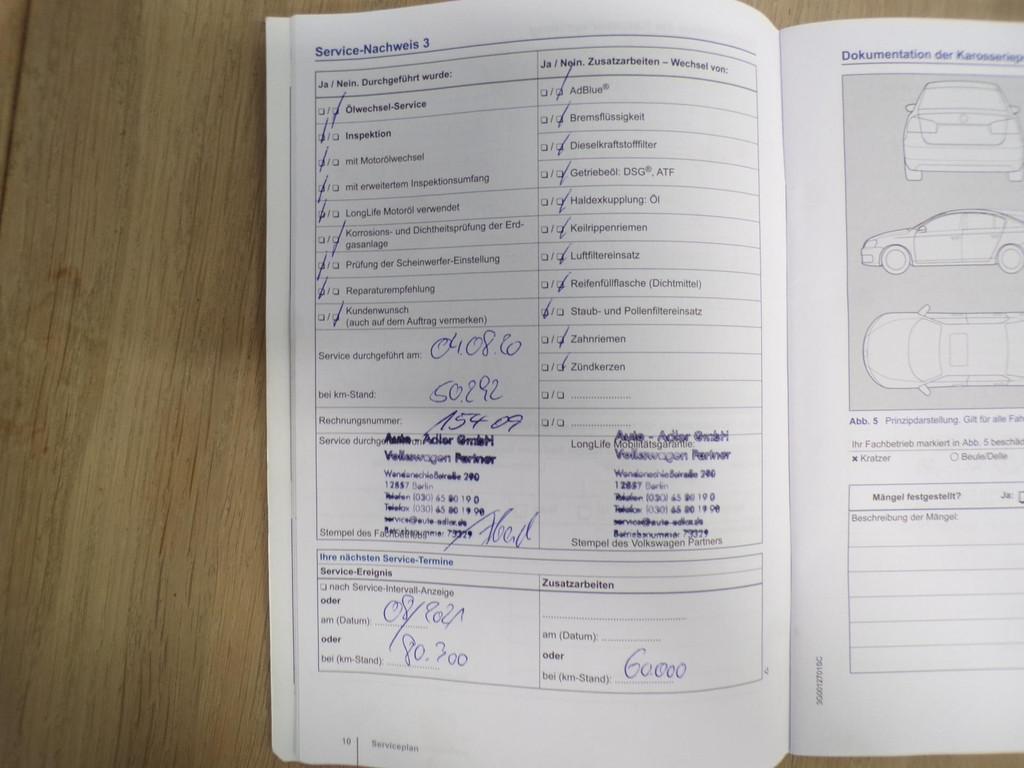 Service-Nachweis 3
Ja / Nein. Durchgeführt wurde:
Ölwechsel-Service
Inspektion
mit Motorölwechsel
mit erweitertem Inspektionsumfang
LongLife Motoröl verwendet
Korrosions- und Dichtheitsprüfung der Erd-
gasanlage
Prüfung der Scheinwerfer-Einstellung
Reparaturempfehlung
Kundenwunsch
(auch auf dem Auftrag vermerken)
Service durchgeführt am: 04.08.20
bei km-Stand: 50.292
Rechnungsnummer: 15409
Service durchge
Auto - Adler GmbH
Volkswagen Partner
12587 Berlin
Telefon (030) 65 80 19 0
Telefax (030) 65 80 19 90
service@auto-adler.de
Betriebsnummer 73329
Stempel des Fachbetriebs
Ja / Nein. Zusatzarbeiten – Wechsel von:
AdBlue®
Bremsflüssigkeit
Dieselkraftstofffilter
Getriebeöl: DSG®, ATF
Haldexkupplung: Öl
Keilrippenriemen
Luftfiltereinsatz
Reifenfüllflasche (Dichtmittel)
Staub- und Pollenfiltereinsatz
Zahnriemen
Zündkerzen
LongLife Mobilitätsgarantie:
Auto - Adler GmbH
Volkswagen Partner
12587 Berlin
Telefon (030) 65 80 19 0
Telefax (030) 65 80 19 90
service@auto-adler.de
Betriebsnummer 73329
Stempel des Volkswagen Partners
Ihre nächsten Service-Termine
Service-Ereignis
nach Service-Intervall-Anzeige
oder
am (Datum): 08/2021
oder
bei (km-Stand): 80.300
Zusatzarbeiten
am (Datum):
oder
bei (km-Stand): 60.000
10 Serviceplan
Dokumentation der
Abb. 5 Prinzipdarstellung. Gilt für alle
Ihr Fachbetrieb markiert in Abb. 5
x Kratzer O Beule/Delle
Mängel festgestellt? Ja:
Beschreibung der Mängel:
3G0012701SC